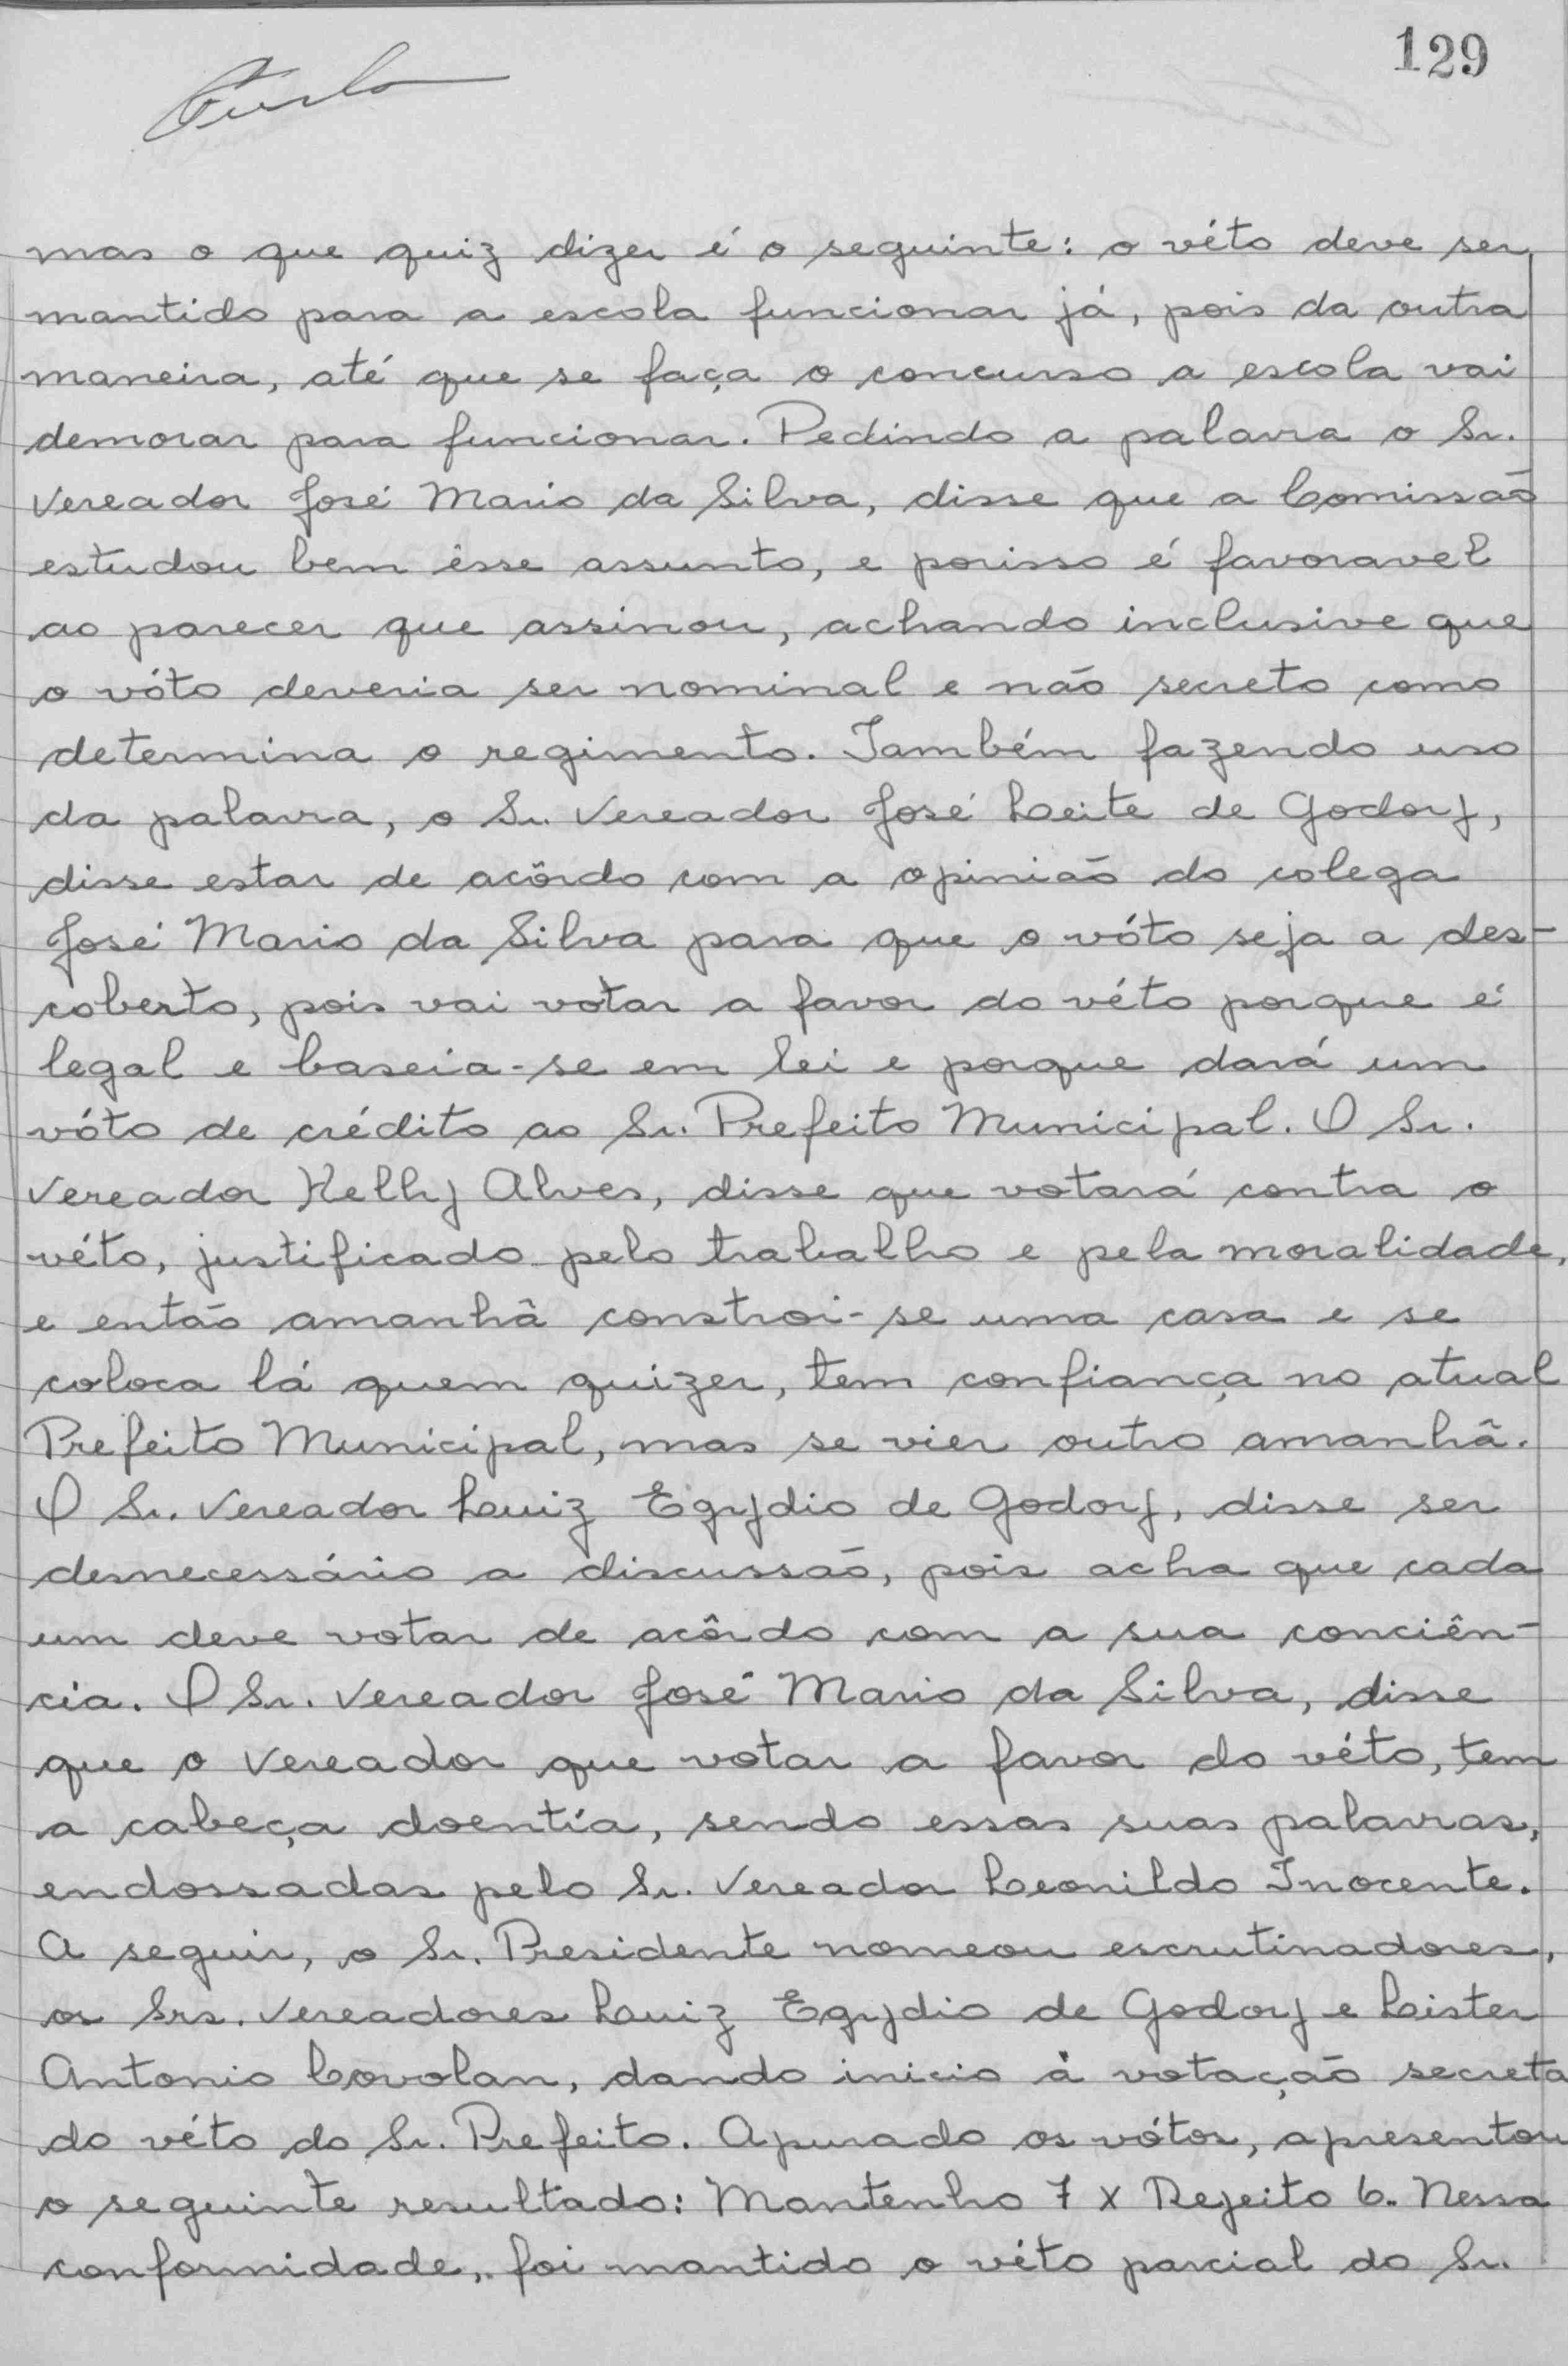 129
mas o que quiz dizer é o seguinte: o véto deve ser
mantido para a escola funcionar já, pois da outra
maneira, até que se faça o concurso a escola vai
demorar para funcionar. Pedindo a palavra o Sr.
Vereador José Mario da Silva, disse que a Comissão
estudou bem êsse assunto, e porisso é favoravel
ao parecer que assinou, achando inclusive que
o vóto deveria ser nominal e não secreto como
determina o regimento. Também fazendo uso
da palavra, o Sr. Vereador José Leite de Godoy,
disse estar de acôrdo com a opinião do colega
José Mario da Silva para que o vóto seja a des-
coberto, pois vai votar a favor do véto porque é
legal e baseia-se em lei e porque dará um
vóto de crédito ao Sr. Prefeito Municipal. O Sr.
Vereador Kelly Alves, disse que votará contra o
véto, justificado pelo trabalho e pela moralidade,
e então amanhã constroi-se uma casa e se
coloca lá quem quizer, tem confiança no atual
Prefeito Municipal, mas se vier outro amanhã.
O Sr. Vereador Luiz Egydio de Godoy, disse ser
desnecessário a discussão, pois acha que cada
um deve votar de acôrdo com a sua conciên-
cia. O Sr. Vereador José Mario da Silva, disse
que o Vereador que votar a favor do véto, tem
a cabeça doentía, sendo essas suas palavras,
endossadas pelo Sr. Vereador Leonildo Inocente.
A seguir, o Sr. Presidente nomeou escrutinadores,
os Srs. Vereadores Luiz Egydio de Godoy e Lister
Antonio Covolan, dando inicio à votação secreta
do véto do Sr. Prefeito. Apurado os vótos, apresentou
o seguinte resultado: Mantenho 7 x Rejeito 6. Nessa
conformidade, foi mantido o véto parcial do Sr.